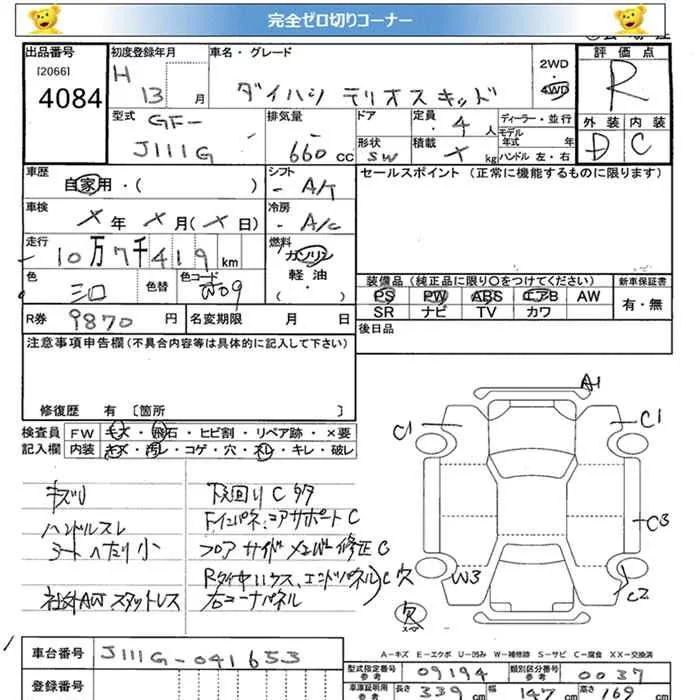 完全ゼロ切りコーナー
出品番号 [2066] 4084
初度登録年月 H 13 月
車名・グレード ダイハツ テリオスキッド
2WD 4WD
評価点 R
型式 GF-J111G
排気量 660 cc
ドア
形状 SW
定員 4 人
積載 × kg
ディーラー・並行
モデル年式 年
ハンドル 左・右
外装 D 内装 C
車歴 自家用・( )
シフト - A/T
車検 × 年 × 月 ( × 日)
冷房 - A/C
走行 10万7千419 km
燃料 ガソリン 軽油 ( )
色 シロ 色替 色コード W09
R券 9870 円 名変期限 月 日
セールスポイント (正常に機能するものに限ります)
装備品 (純正品に限り○をつけてください) 新車保証書
PS PW ABS エアB AW 有・無
SR ナビ TV カワ
後日品
注意事項申告欄(不具合内容等は具体的に記入して下さい)
修復歴 有 〔箇所 〕
検査員 FW キズ・飛石・ヒビ割・リペア跡・×要
記入欄 内装 キズ・汚レ・コゲ・穴・スレ・キレ・破レ
キズU
ハンドルスレ
シートヘたり小
社外AW スタットレス
下回りC タタ
Fインパネ、コアサポートC
フロアサイドメンバー修正C
Rタイヤハウス、エンドパネル)C穴
右コーナパネル
A1
C1 C1
C3
W3 C2
欠
A-キズ E-エクボ U-凹み W-補修跡 S-サビ C-腐食 XX-交換済
車台番号 J111G-041653
登録番号
型式指定番号 参考 09194 類別区分番号 参考 0037
車庫証明用 参考 長さ 339 cm 幅 147 cm 高さ 169